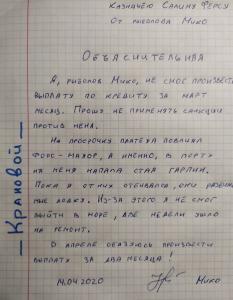 Казначею Салину Ферсу
От рыболова Мико
Объяснительная
Я, рыболов Мико, не смог произвести
выплату по кредиту за март
месяц. Прошу не применять санкции
против меня.
На просрочку платежа повлиял
форс-мажор, а именно, в порту
на меня напала стая гарпий.
Пока я от них отбивался, они разбили
мне лодку. Из-за этого я не смог
выйти в море, две недели ушло
на ремонт.
В апреле обязуюсь произвести
выплату за два месяца!
14.04.2020 Мико
—Крановой—